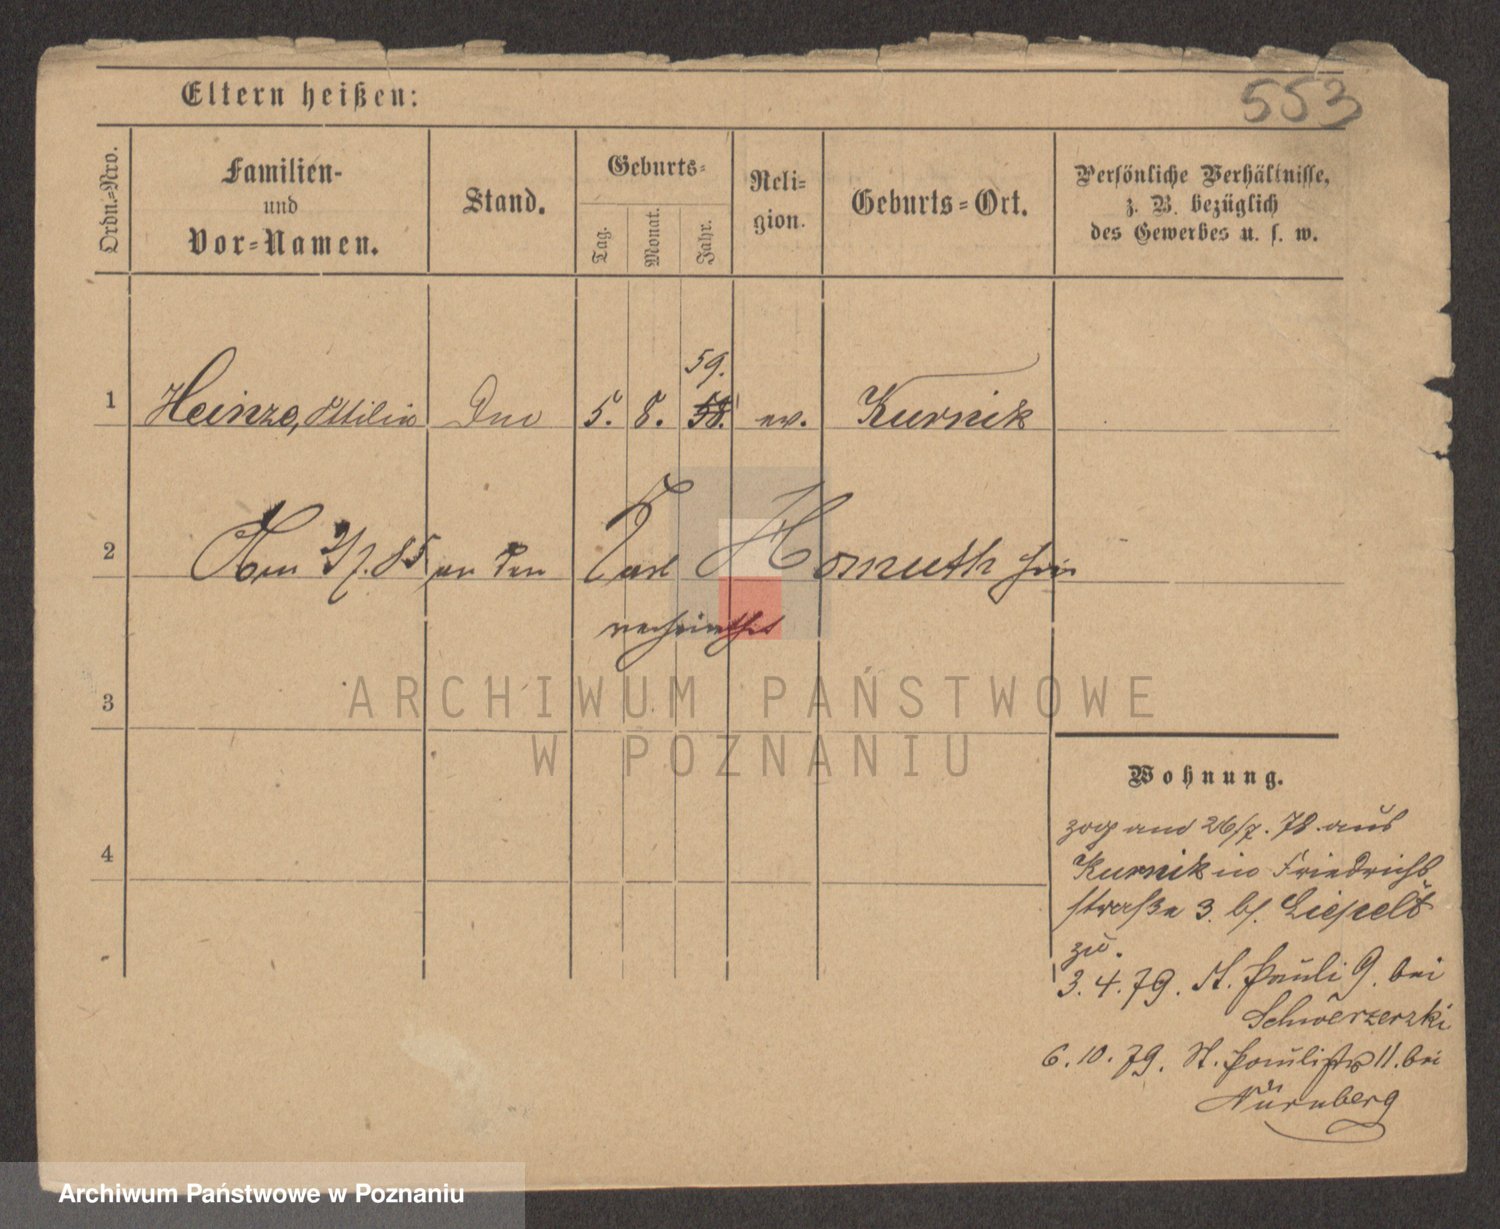 Eltern heißen:
553
Ordn.-Nro.
Familien-
und
Vor-Namen.
Stand.
Geburts-
Tag.
Monat.
Jahr.
Reli-
gion.
Geburts-Ort.
Persönliche Verhältnisse,
z. B. bezüglich
des Gewerbes u. s. w.
59.
1 Heinze, Ottilie 5. 8. 58. ev. Kurnik
2 Am 2/7. 85 an den Karl Homuth hier
verheirathet
3
4
ARCHIWUM PAŃSTWOWE
W POZNANIU
Wohnung.
zog am 26/7. 78 aus
Kurnik in Friedrichs
straße 3. bei Liepelt
zu.
3. 4. 79. St. Pauli 9. bei
Schwerzerzki
6. 10. 79. St. Paulistr 11. bei
Nürnberg
Archiwum Państwowe w Poznaniu